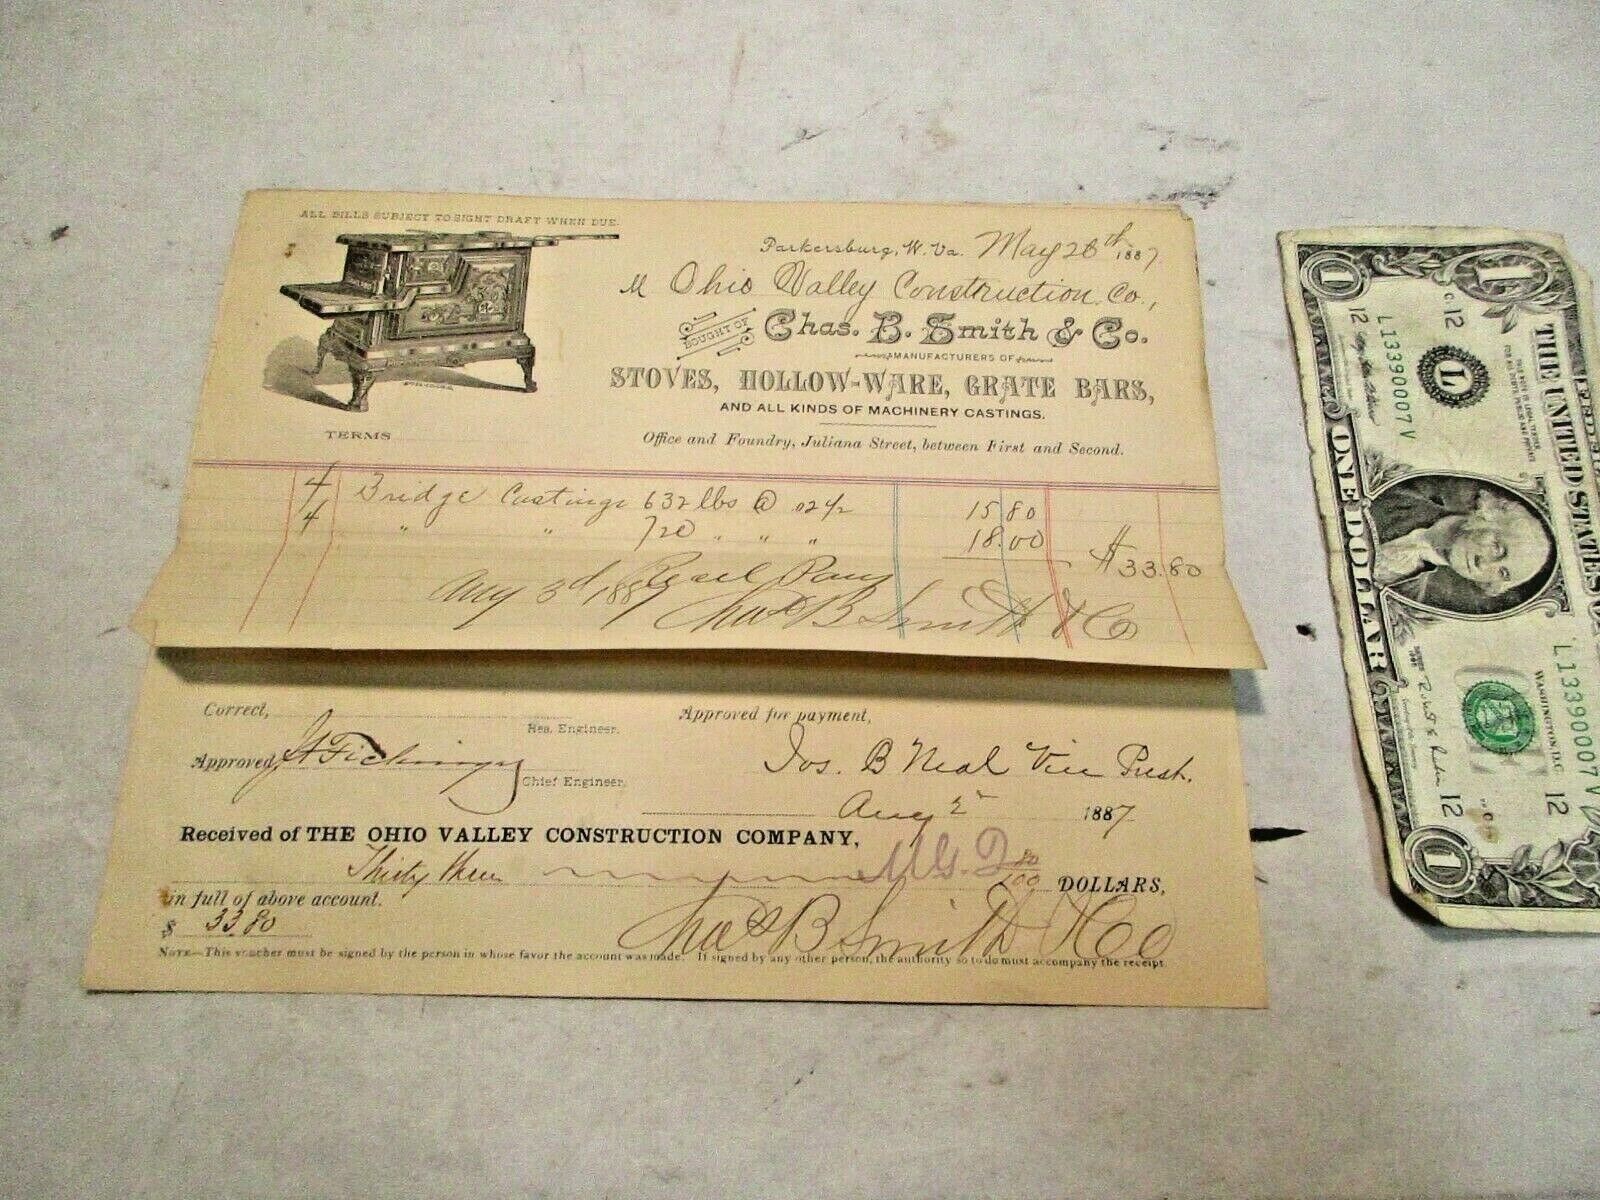 ALL BILLS SUBJECT TO SIGHT DRAFT WHEN DUE.
Parkersburg, W. Va. May 26th 1887
M Ohio Valley Construction Co.,
BOUGHT OF Chas. B. Smith & Co.
MANUFACTURERS OF
STOVES, HOLLOW-WARE, GRATE BARS,
AND ALL KINDS OF MACHINERY CASTINGS.
TERMS
Office and Foundry, Juliana Street, between First and Second.
4 Bridge Castings 632 lbs @ .02½ 15.80
4 " " 720 " " " 18.00 $33.80
Aug 3d, 1887 Recd Pay
Chas B Smith & Co
Correct,
Res. Engineer.
Approved for payment,
Approved,
Chief Engineer.
Jos. B Neal Vice Prest.
Aug 2" 1887
Received of THE OHIO VALLEY CONSTRUCTION COMPANY,
Thirty three 80/100 DOLLARS,
in full of above account.
$ 33.80
Chas B Smith & Co
NOTE—This voucher must be signed by the person in whose favor the account was made. If signed by any other person, the authority so to do must accompany the receipt.
THE UNITED STATES O
ONE DOLLAR
L13390007V
L13390007V
WASHINGTON, D.C.
L
12
12
12
12
1
1
1